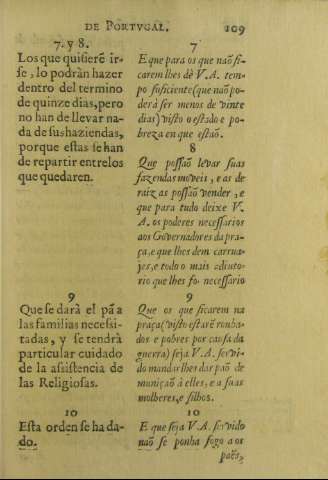 DE PORTVGAL. 109
7. y 8.
Los que quisierẽ ir-
se, lo podràn hazer
dentro del termino
de quinze dias, pero
no han de llevar na-
da de sus haziendas,
porque estas se han
de repartir entre los
que quedaren.
9
Que se darà el pã a
las familias necessi-
tadas, y se tendrà
particular cuidado
de la asistencia de
las Religiosas.
10
Esta orden se ha da-
do.
7
E que para os que naõ fi-
carem lhes dè V.A. tem-
po suficiente (que naõ po-
derà ser menos de vinte
dias) visto o estado e po-
breza en que estaõ.
8
Que possaõ levar suas
fazendas moveis, e as de
raiz as possaõ vender, e
que para tudo deixe V.
A. os poderes necessarios
aos Governadores da pra-
ça, e que lhes dem carrua-
jes, e todo o mais adiuto-
rio que lhes fo. necessario
9
Que os que ficarem na
praça (visto estarẽ rouba-
dos e pobres por causa da
guerra) seja V.A. servi-
do mandar lhes dar paõ de
muniçaõ à elles, e a suas
molheres, e filhos.
10
E que seja V.A. servido
naõ se ponha fogo a os
paẽs,